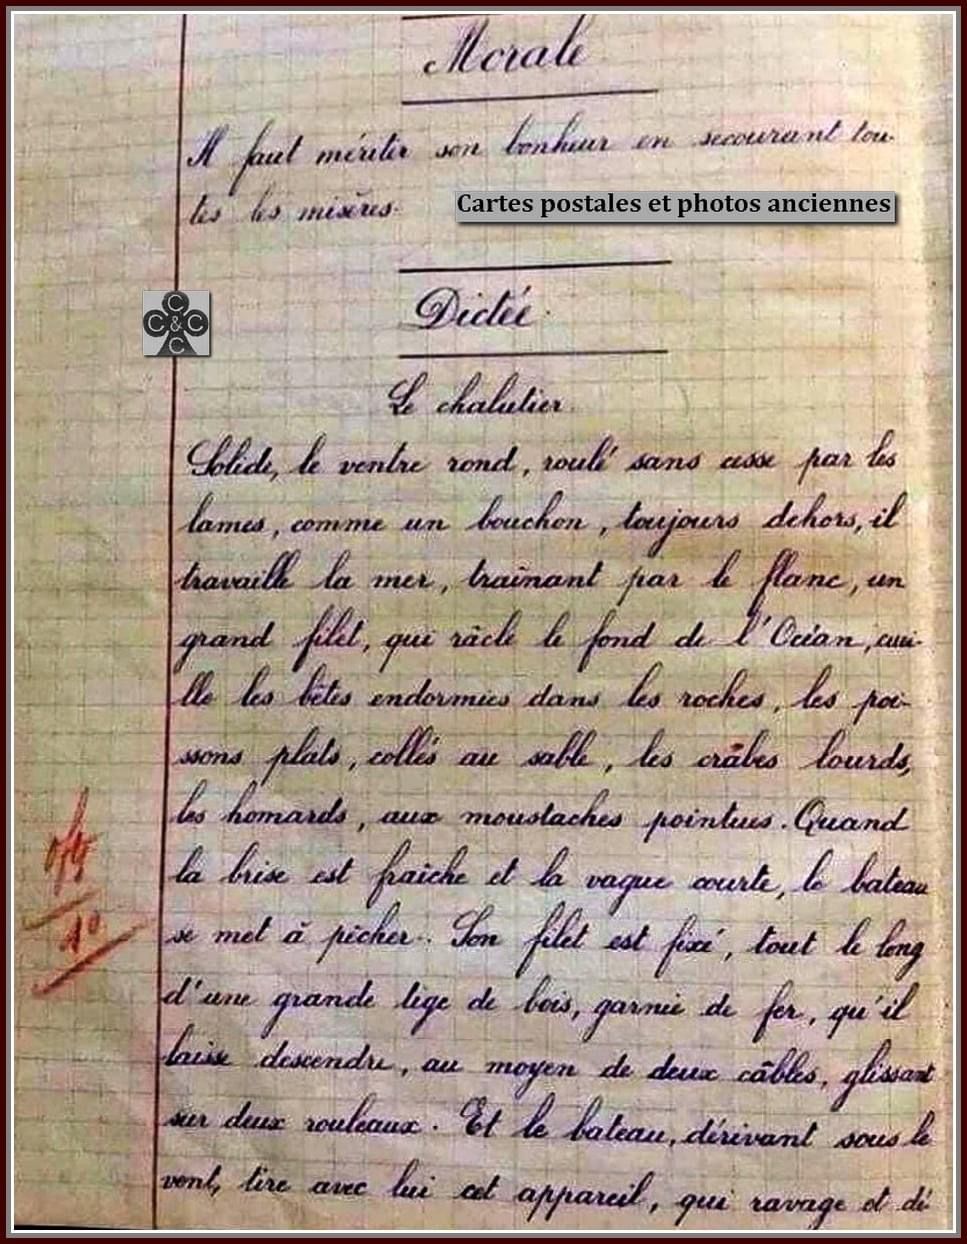 Morale
Il faut mériter son bonheur en secourant tou-
tes les misères.
Cartes postales et photos anciennes
Dictée.
C
C & C
C
Le chalutier.
Solide, le ventre rond, roulé sans cesse par les
lames, comme un bouchon, toujours dehors, il
travaille la mer, traînant par le flanc, un
grand filet, qui râcle le fond de l'Océan, cuei-
lle les bêtes endormies dans les roches, les poi-
ssons plats, collés au sable, les crâbes lourds,
les homards, aux moustaches pointues. Quand
la brise est fraîche et la vague courte, le bateau
se met à pêcher. Son filet est fixé, tout le long
10
d'une grande tige de bois, garnie de fer, qu'il
laisse descendre, au moyen de deux câbles, glissant
sur deux rouleaux. Et le bateau, dérivant sous le
vent, tire avec lui cet appareil, qui ravage et dé-